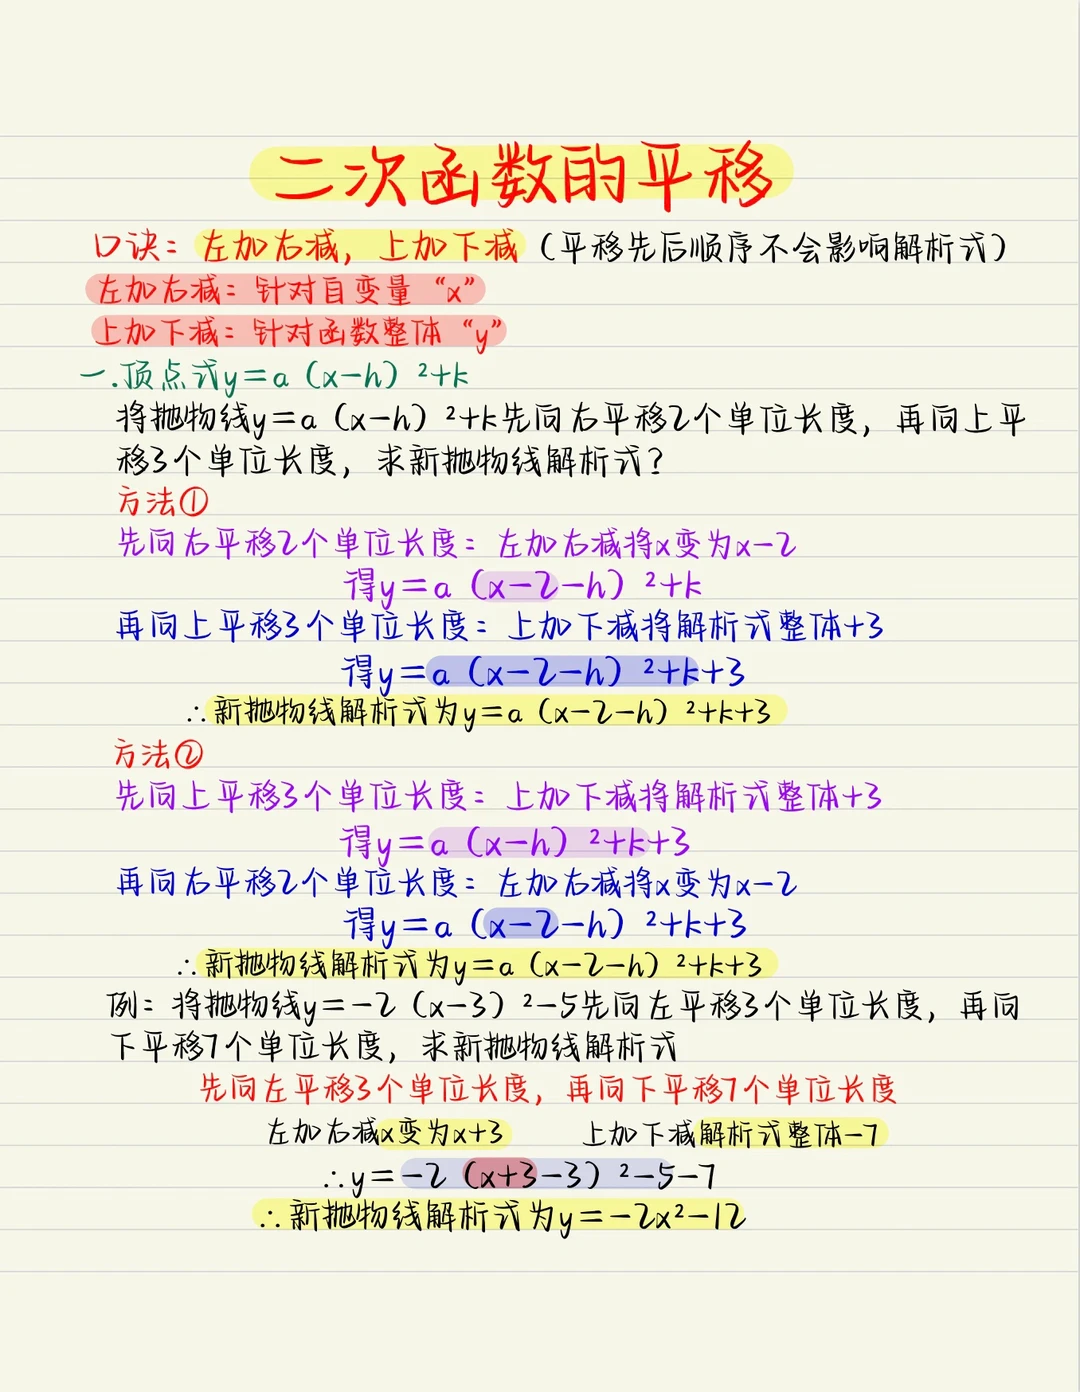 二次函数的平移
口诀：左加右减，上加下减（平移先后顺序不会影响解析式）
左加右减：针对自变量“x”
上加下减：针对函数整体“y”
一.顶点式y=a（x-h）²+k
将抛物线y=a（x-h）²+k先向右平移2个单位长度，再向上平
移3个单位长度，求新抛物线解析式？
方法①
先向右平移2个单位长度：左加右减将x变为x-2
得y=a（x-2-h）²+k
再向上平移3个单位长度：上加下减将解析式整体+3
得y=a（x-2-h）²+k+3
∴新抛物线解析式为y=a（x-2-h）²+k+3
方法②
先向上平移3个单位长度：上加下减将解析式整体+3
得y=a（x-h）²+k+3
再向右平移2个单位长度：左加右减将x变为x-2
得y=a（x-2-h）²+k+3
∴新抛物线解析式为y=a（x-2-h）²+k+3
例：将抛物线y=-2（x-3）²-5先向左平移3个单位长度，再向
下平移7个单位长度，求新抛物线解析式
先向左平移3个单位长度，再向下平移7个单位长度
左加右减x变为x+3 上加下减解析式整体-7
∴y=-2（x+3-3）²-5-7
∴新抛物线解析式为y=-2x²-12